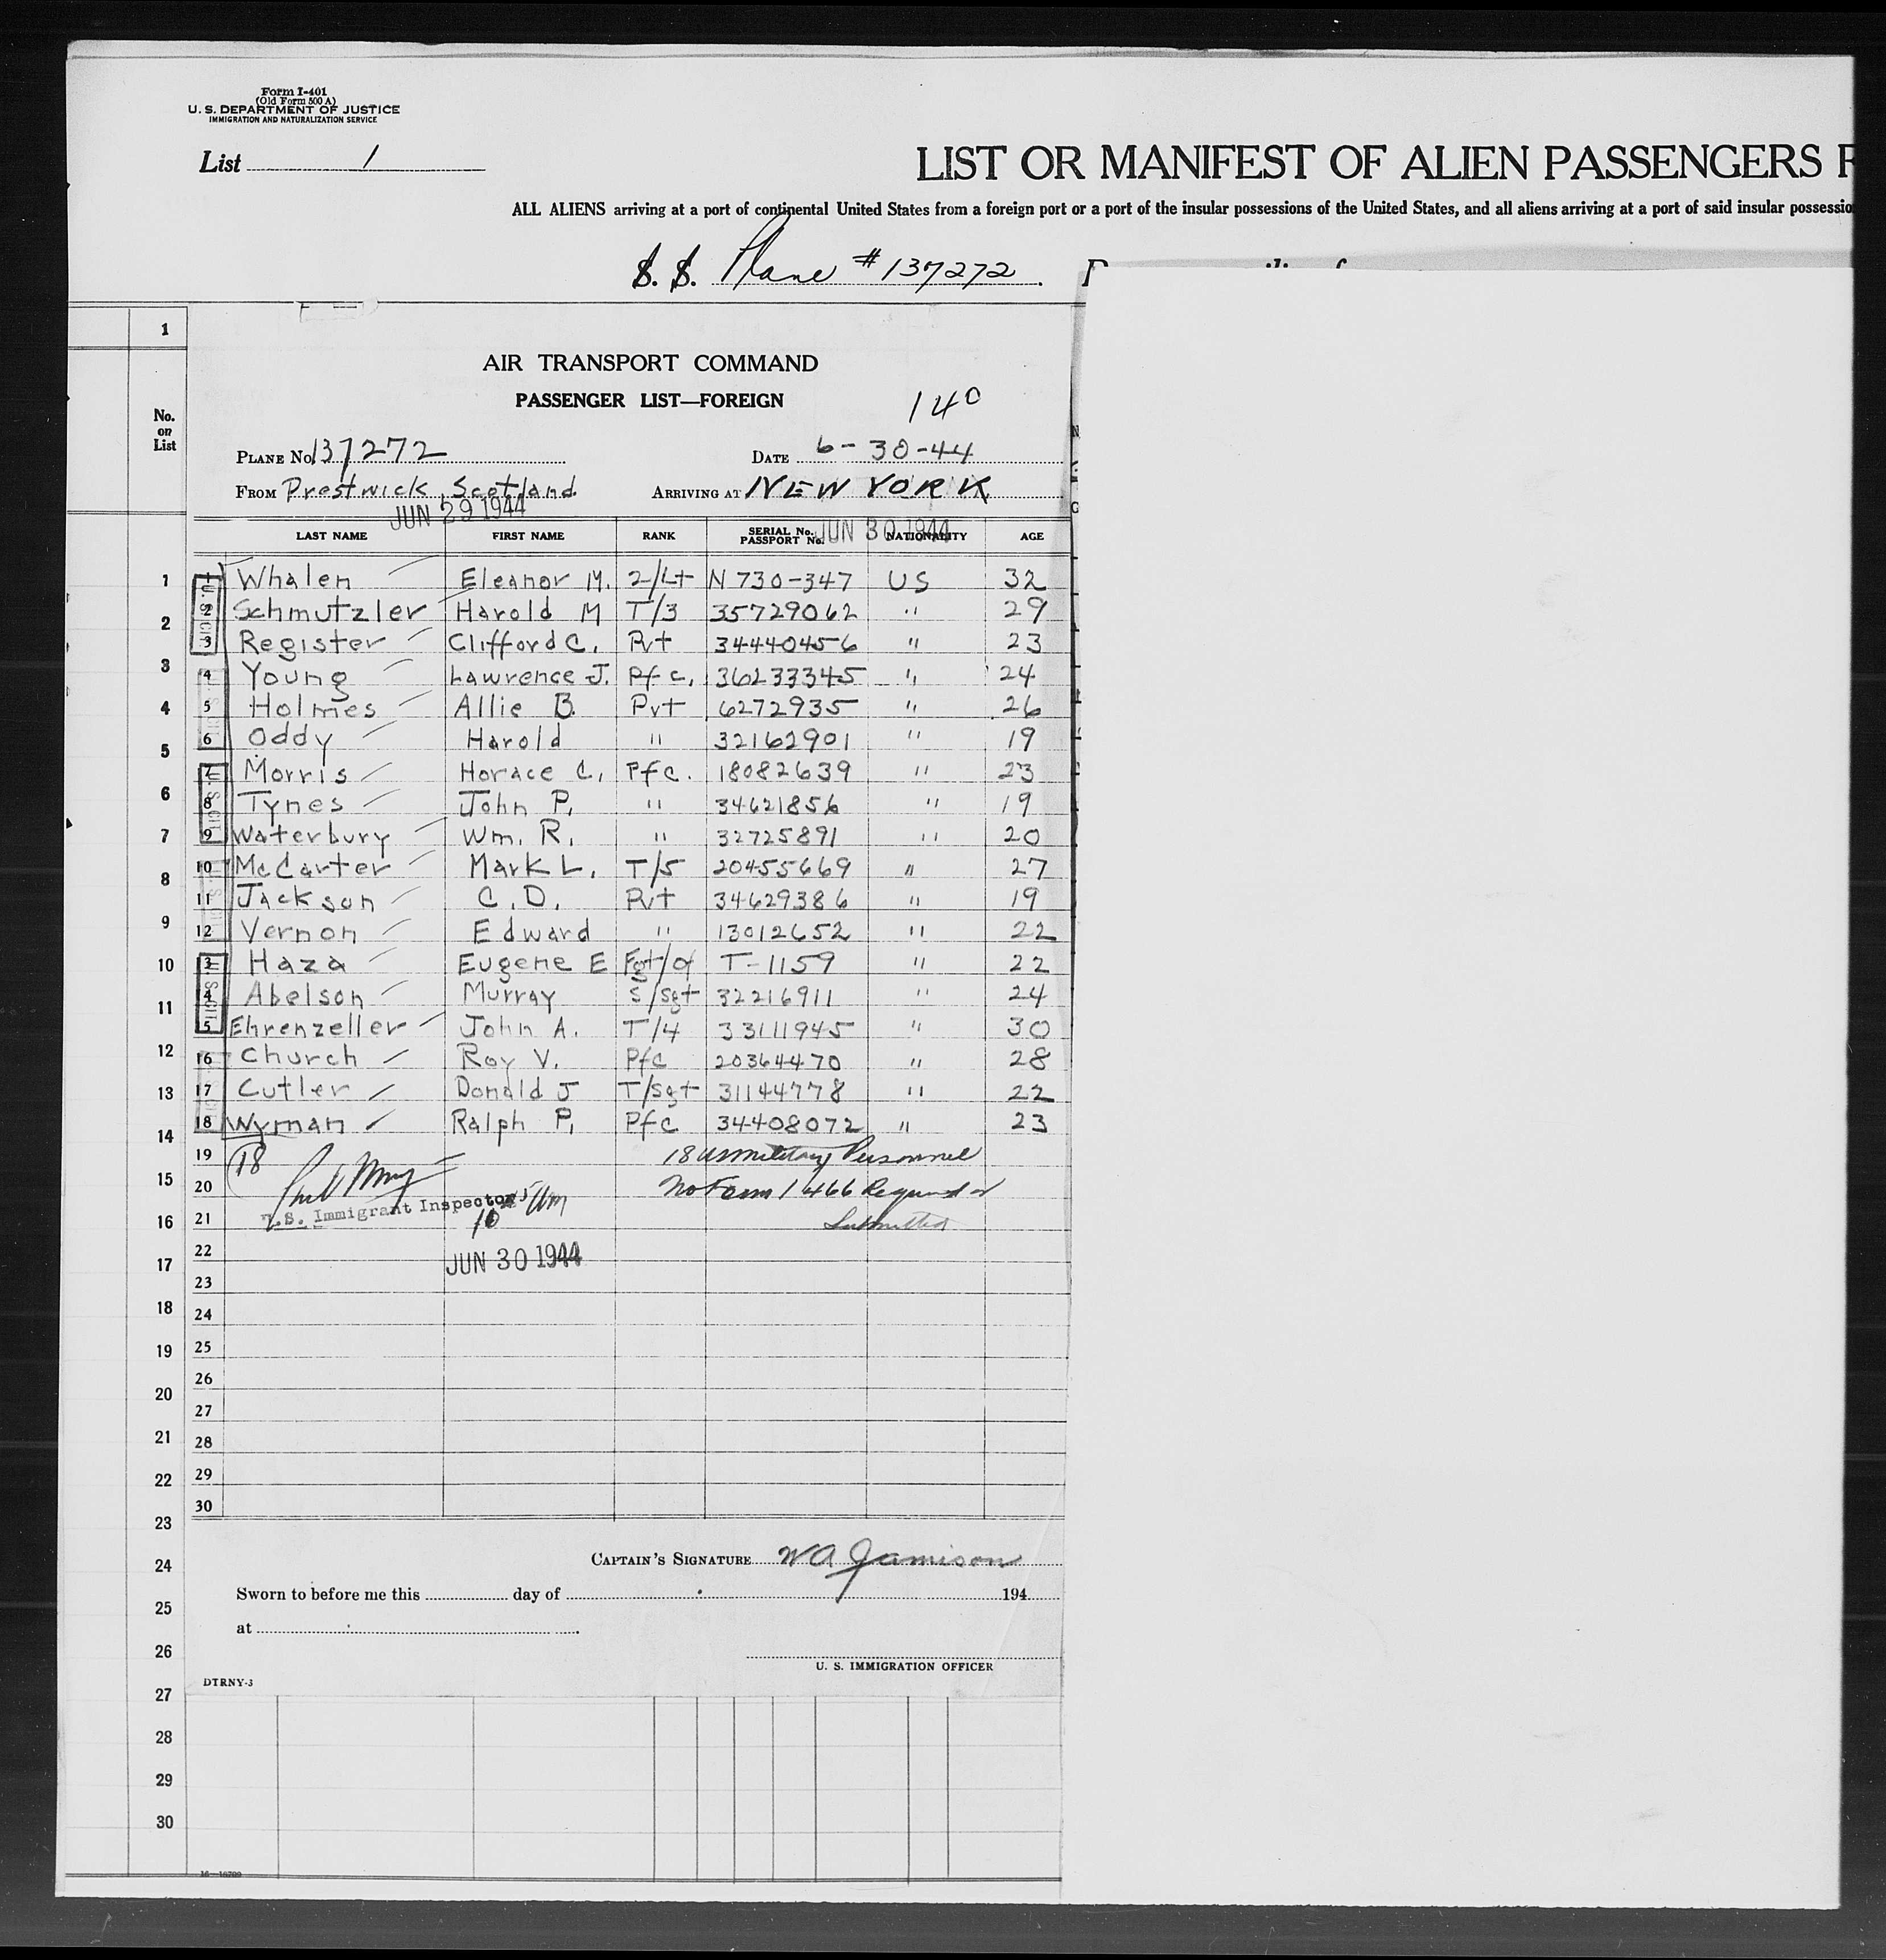 Form I-401
(Old Form 500 A)
U. S. DEPARTMENT OF JUSTICE
IMMIGRATION AND NATURALIZATION SERVICE
List 1
LIST OR MANIFEST OF ALIEN PASSENGERS F
ALL ALIENS arriving at a port of continental United States from a foreign port or a port of the insular possessions of the United States, and all aliens arriving at a port of said insular possessio
S. S. Plane # 137272
1
No. on List
AIR TRANSPORT COMMAND
PASSENGER LIST—FOREIGN
140
PLANE No. 137272 DATE 6-30-44
FROM Prestwick Scotland ARRIVING AT NEW YORK
JUN 29 1944 JUN 30 1944
LAST NAME FIRST NAME RANK SERIAL No. PASSPORT No. NATIONALITY AGE
1 Whalen Eleanor M. 2/Lt N 730-347 US 32
2 Schmutzler Harold M T/3 35729062 " 29
3 Register Clifford C. Pvt 34440456 " 23
4 Young Lawrence J. Pfc. 36233345 " 24
5 Holmes Allie B. Pvt 6272935 " 26
6 Oddy Harold " 32162901 " 19
7 Morris Horace C. Pfc. 18082639 " 23
8 Tynes John P. " 34621856 " 19
9 Waterbury Wm. R. " 32725891 " 20
10 McCarter Mark L. T/5 20455669 " 27
11 Jackson C. D. Pvt 34629386 " 19
12 Vernon Edward " 13012652 " 22
13 Haza Eugene E Fgt/of T-1159 " 22
14 Abelson Murray S/Sgt 32216911 " 24
15 Ehrenzeller John A. T/4 33111945 " 30
16 Church Roy V. Pfc 20364470 " 28
17 Cutler Donald J T/Sgt 31144778 " 22
18 Wyman Ralph P. Pfc 34408072 " 23
19 18 18 US military Personnel
20 No Form I 466 Required or
21 U.S. Immigrant Inspector Submitted
10
22 JUN 30 1944
23
24
25
26
27
28
29
30
CAPTAIN'S SIGNATURE W A Jamison
Sworn to before me this day of 194
at
U. S. IMMIGRATION OFFICER
DTRNY-3
1
2
3
4
5
6
7
8
9
10
11
12
13
14
15
16
17
18
19
20
21
22
23
24
25
26
27
28
29
30